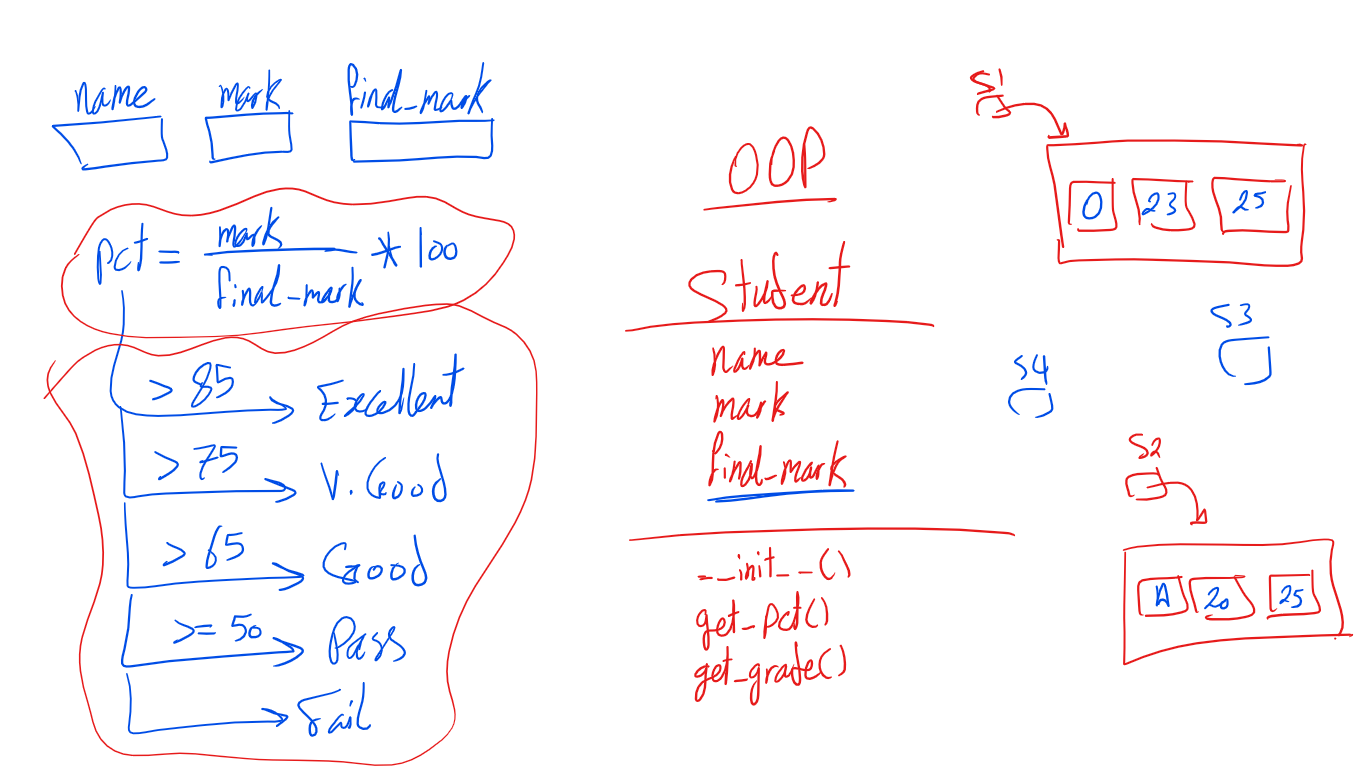 name mark final_mark
pct = mark / final_mark * 100
> 85 Excellent
> 75 V. Good
> 65 Good
>= 50 Pass
Fail
OOP
Student
name
mark
final_mark
__init__()
get_pct()
get_grade()
S1
O 23 25
S3
S4
S2
A 20 25